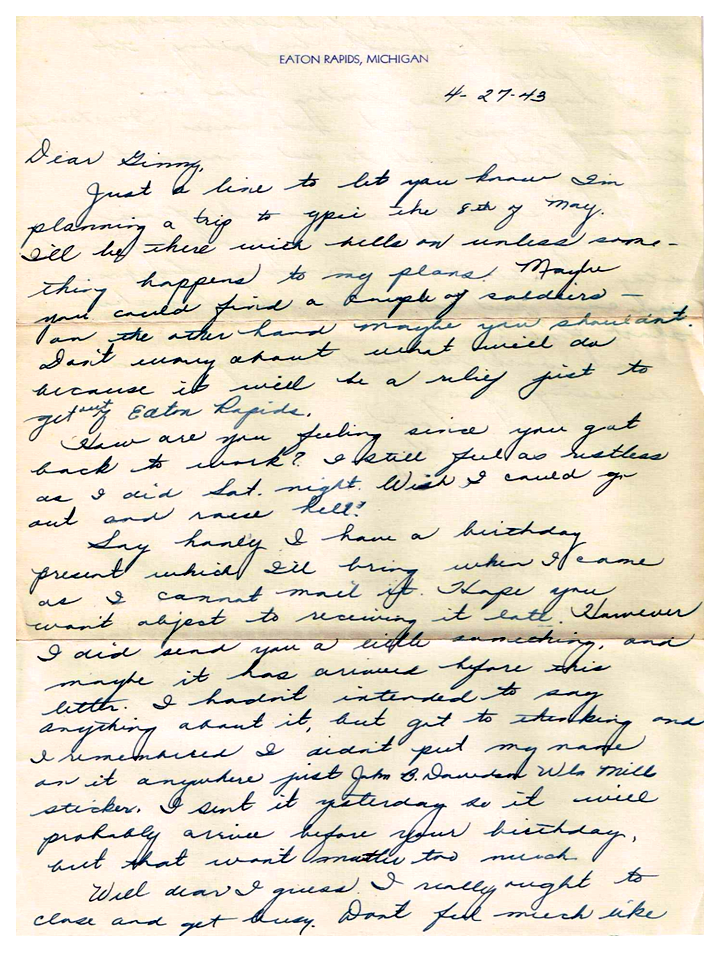 EATON RAPIDS, MICHIGAN
4-27-43
Dear Ginny,
Just a line to let you know I'm
planning a trip to ypsi the 8th of May.
I'll be there with bells on unless some-
thing happens to my plans. Maybe
you could find a couple of soldiers —
on the other hand maybe you shouldn't.
Don't worry about what we'll do
because it will be a relief just to
get out of Eaton Rapids.
How are you feeling since you got
back to work? I still feel as restless
as I did Sat. night. Wish I could go
out and raise hell!
Say honey I have a birthday
present which I'll bring when I come
as I cannot mail it. Hope you
wont object to receiving it late. However
I did send you a little something, and
maybe it has arrived before this
letter. I hadn't intended to say
anything about it, but got to thinking and
I remembered I didn't put my name
on it anywhere just John B. Davidson Wln Mill
sticker. I sent it yesterday so it will
probably arrive before your birthday,
but that won't matter too much.
Well dear I guess I really ought to
close and get busy. Dont feel much like